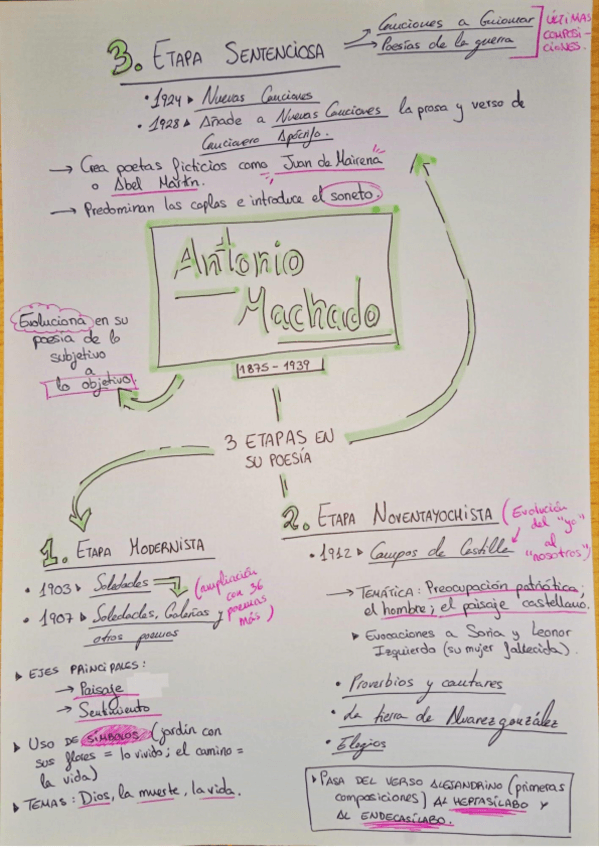 3. ETAPA SENTENCIOSA
Canciones a Guiomar
Poesías de la guerra
ÚLTIMAS
COMPOSI-
CIONES.
• 1924 ▸ Nuevas Canciones
• 1928 ▸ Añade a Nuevas Canciones la prosa y verso de
Cancionero Apócrifo.
→ Crea poetas ficticios como "Juan de Mairena"
o Abel Martín.
→ Predominan las coplas e introduce el soneto.
Antonio
Machado
1875 - 1939
Evoluciona en su
poesía de lo
subjetivo
a
lo objetivo.
3 ETAPAS EN
SU POESÍA
1. ETAPA MODERNISTA
• 1903 ▸ Soledades
• 1907 ▸ Soledades, Galerías y
otros poemas
(ampliación
con 36
poemas
más)
▸ EJES PRINCIPALES:
→ Paisaje
→ Sentimiento
▸ USO DE SÍMBOLOS (jardín con
sus flores = lo vivido; el camino =
la vida)
▸ TEMAS: Dios, la muerte, la vida.
2. ETAPA NOVENTAYOCHISTA
(Evolución
del "yo"
al
"nosotros")
• 1912 ▸ Campos de Castilla
→ TEMÁTICA: Preocupación patriótica;
el hombre; el paisaje castellano.
▸ Evocaciones a Soria y Leonor
Izquierdo (su mujer fallecida).
• Proverbios y cantares
• La tierra de Alvargonzález
• Elogios
▸ PASA DEL VERSO ALEJANDRINO (primeras
composiciones) AL HEPTASÍLABO Y
AL ENDECASÍLABO.